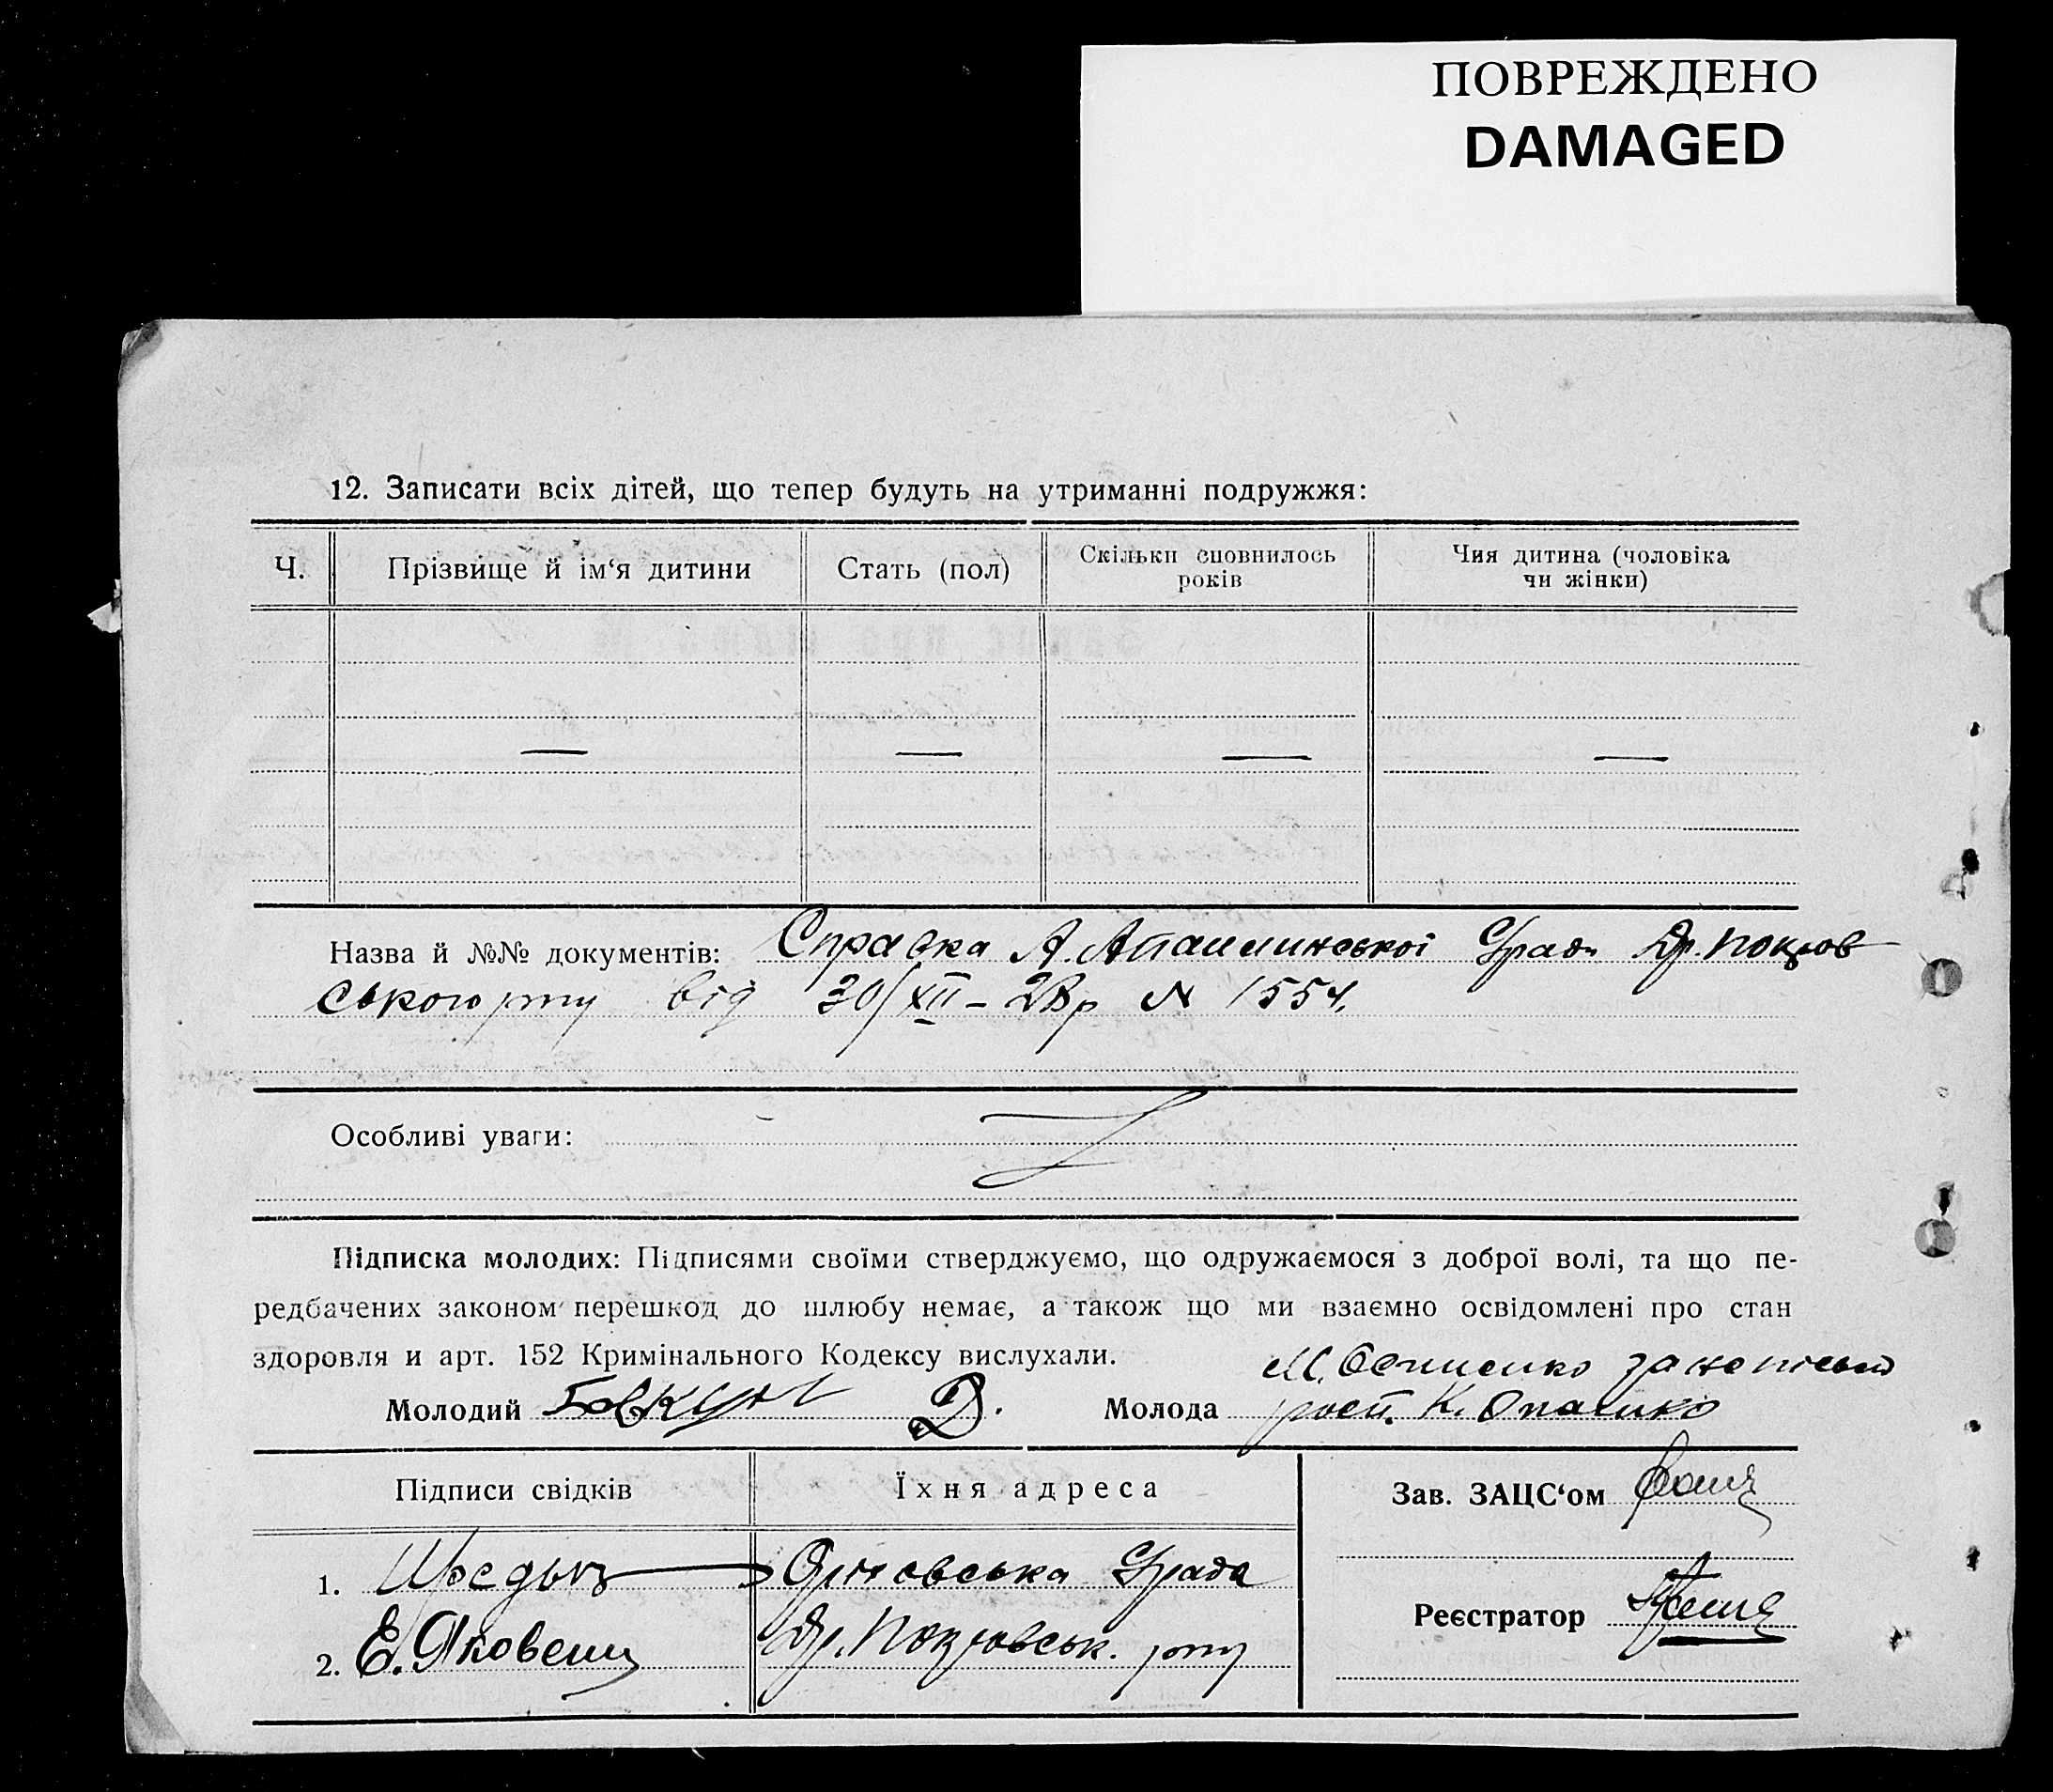 ПОВРЕЖДЕНО
DAMAGED
12. Записати всіх дітей, що тепер будуть на утриманні подружжя:
Ч. Прізвище й ім‘я дитини Стать (пол) Скільки сповнилось років Чия дитина (чоловіка чи жінки)
— — — —
Назва й №№ документів: Справка А. Апашлинської С/ради Др. покров
ського р-ну від 30/XII – 28 р N 1554.
Особливі уваги:
Підписка молодих: Підписями своїми стверджуємо, що одружаємося з доброї волі, та що пе-
редбачених законом перешкод до шлюбу немає, а також що ми взаємно освідомлені про стан
здоровля и арт. 152 Кримінального Кодексу вислухали.
за неписьм
Молодий Бовкун Д. Молода розп. К. Опашко
Підписи свідків Їхня адреса Зав. ЗАЦС‘ом
1. С/рада
2. Е. Яковенц Др. Покровськ. р-ну
Реєстратор